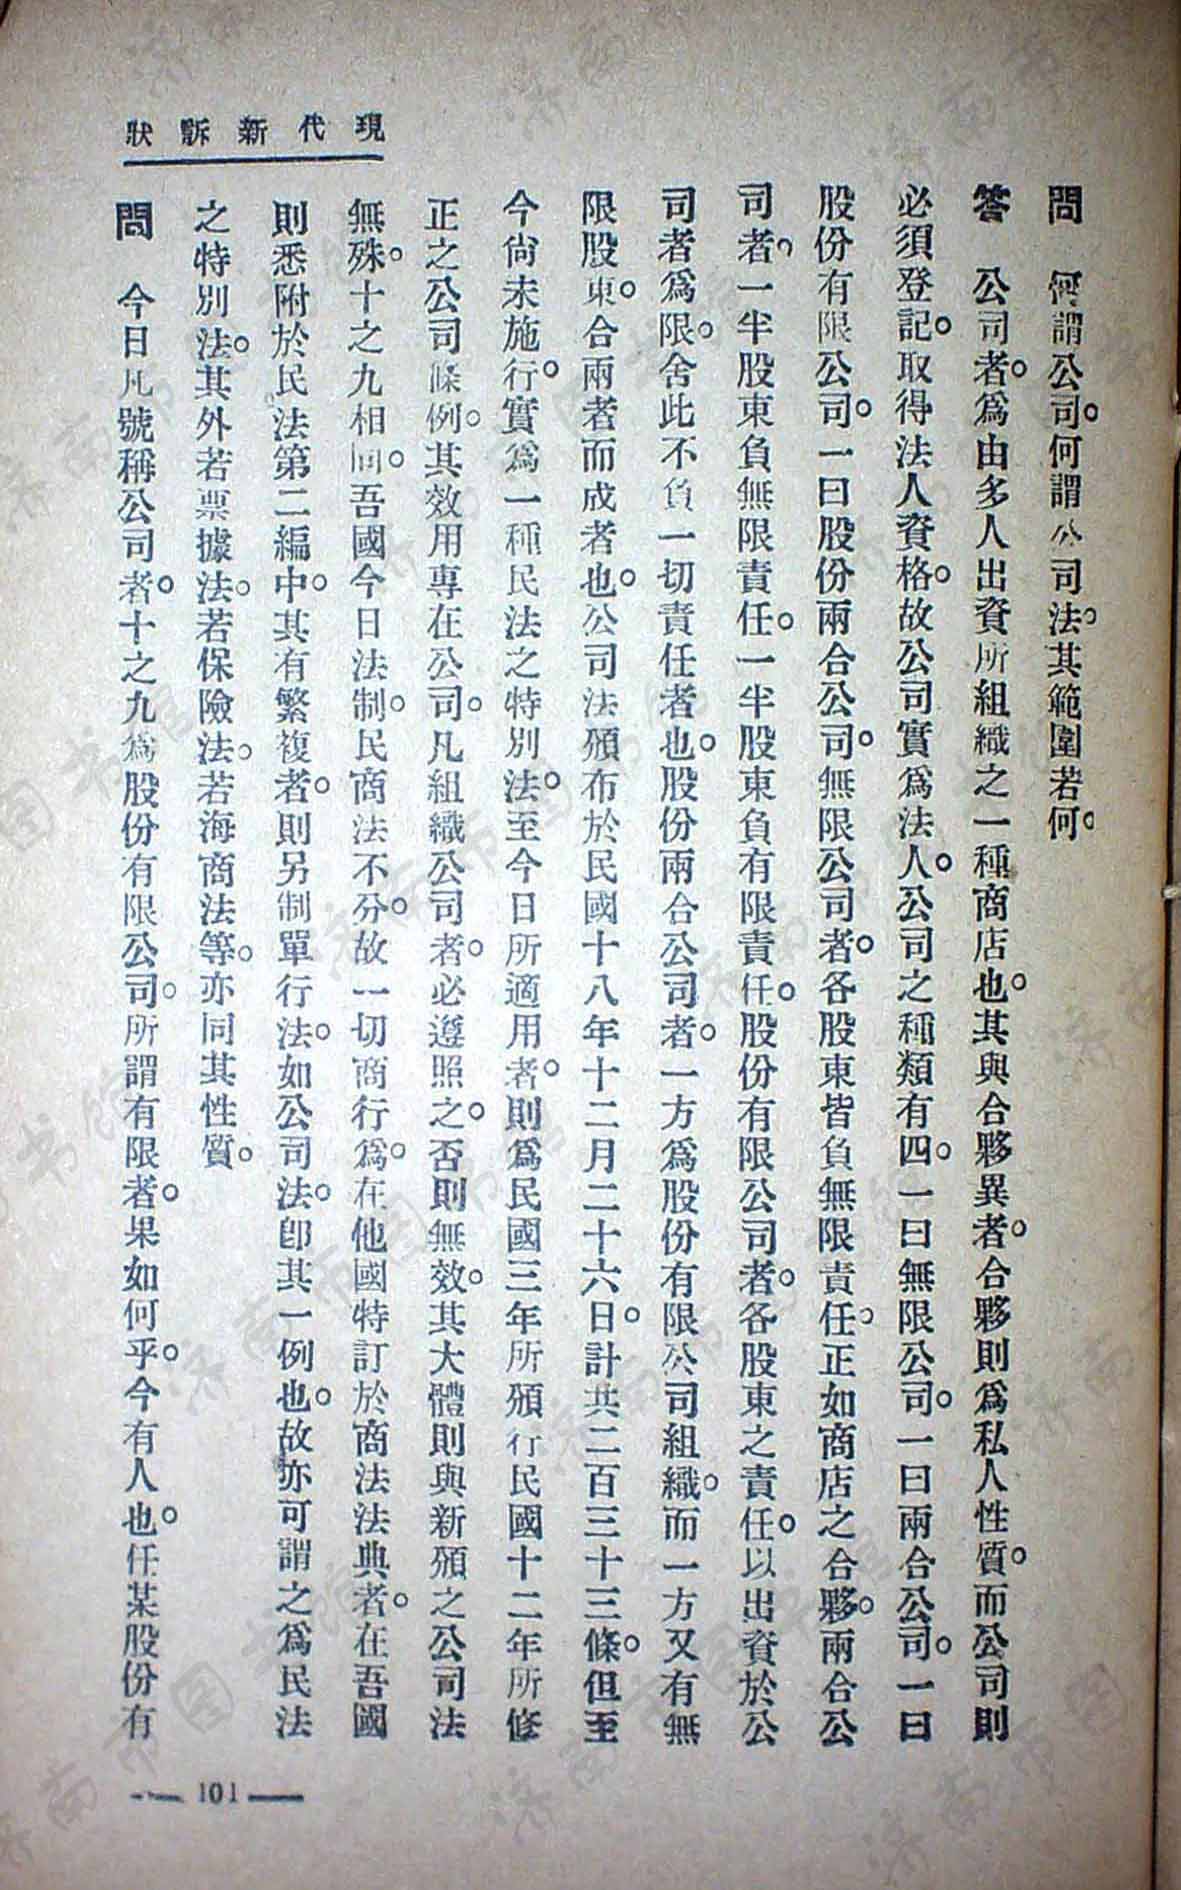 現代新訴狀
問　何謂公司。何謂公司法。其範圍若何。
答　公司者。爲由多人出資所組織之一種商店也。其與合夥異者。合夥則爲私人性質。而公司則
必須登記。取得法人資格。故公司實爲法人。公司之種類有四。一曰無限公司。一曰兩合公司。一曰
股份有限公司。一曰股份兩合公司。無限公司者。各股東皆負無限責任。正如商店之合夥。兩合公
司者。一半股東負無限責任。一半股東負有限責任。股份有限公司者。各股東之責任。以出資於公
司者爲限。舍此不負一切責任者也。股份兩合公司者。一方爲股份有限公司組織。而一方又有無
限股東。合兩者而成者也。公司法頒布於民國十八年十二月二十六日。計共二百三十三條。但至
今尙未施行。實爲一種民法之特別法。至今日所適用者。則爲民國三年所頒行民國十二年所修
正之公司條例。其效用專在公司。凡組織公司者。必遵照之。否則無效。其大體則與新頒之公司法
無殊。十之九相同。吾國今日法制。民商法不分。故一切商行爲。在他國特訂於商法法典者。在吾國
則悉附於民法第二編中。其有繁複者。則另制單行法。如公司法。卽其一例也。故亦可謂之爲民法
之特別法。其外若票據法。若保險法。若海商法等。亦同其性質。
問　今日凡號稱公司者。十之九爲股份有限公司。所謂有限者。果如何乎。今有人也。任某股份有
101
济南市图书馆